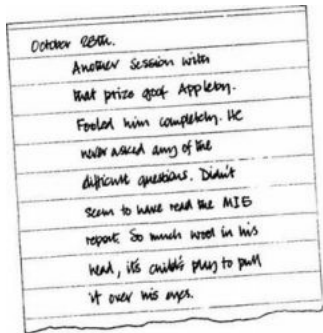 October 28th.
Another Session with
that prize goof Appleby.
Fooled him completely. He
never asked any of the
difficult questions. Didn't
seem to have read the MI5
report. So much wool in his
head, it's child's play to pull
it over his eyes.